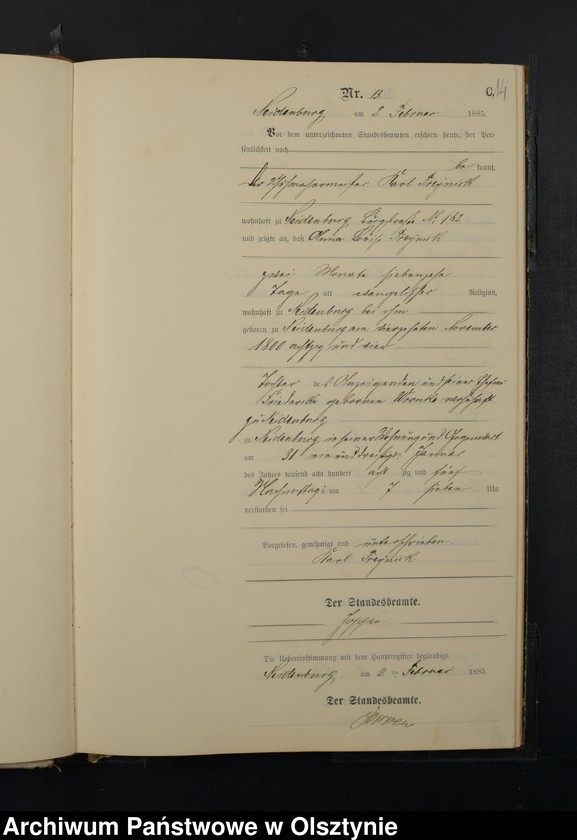 Nr. 13
C.
14
Neidenburg am 2 Februar 1885.
Vor dem unterzeichneten Standesbeamten erschien heute, der Per-
sönlichkeit nach
be kannt,
der Karl
wohnhaft zu Neidenburg Burgstraße № 183
und zeigte an, daß Anna
zwei Monate siebenzehn
Tage alt evangelischer Religion,
wohnhaft zu Neidenburg bei ihm
geboren zu Neidenburg am vierzehnten November
1800 achtzig und vier
Tochter des Anzeigenden und seiner Ehefrau
Friederike geborenen
zu Neidenburg
zu Neidenburg in seiner Wohnung und Gegenwart
am 31 ein und dreißigsten Januar
des Jahres tausend acht hundert acht zig und fünf
Nachmittags um 7 sieben Uhr
verstorben sei
Vorgelesen, genehmigt und unterschrieben
Karl
Der Standesbeamte.
Die Uebereinstimmung mit dem Hauptregister beglaubigt.
Neidenburg am 2 ten Februar 1885.
Der Standesbeamte.
Archiwum Państwowe w Olsztynie